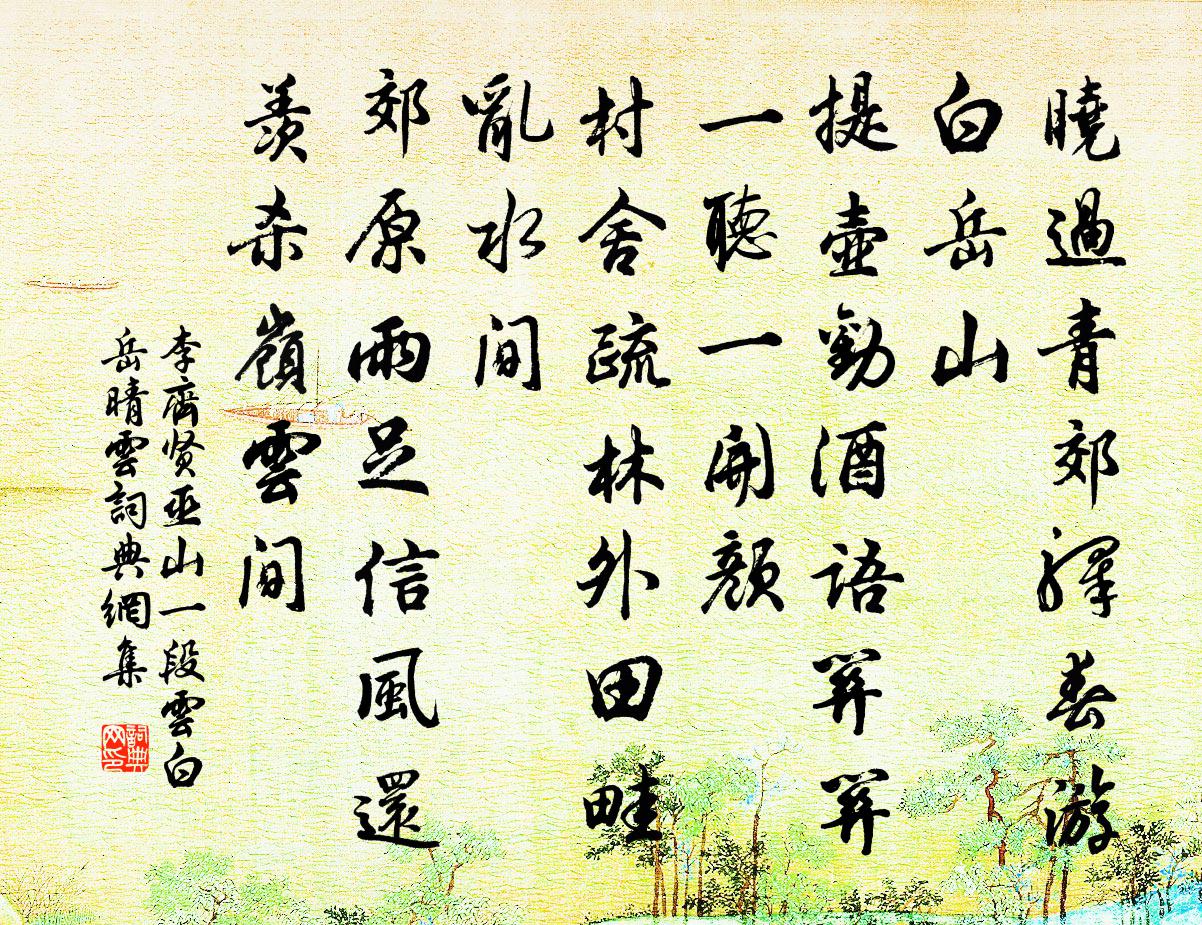 曉過青郊驛春游
白岳山
提壺勸酒語關關
一聽一開顏
村舍疏林外田畦
亂水間
郊原雨足信風還
羨殺嶺雲間
李齊賢巫山一段雲白
岳晴雲詞典網集
詞典
网印